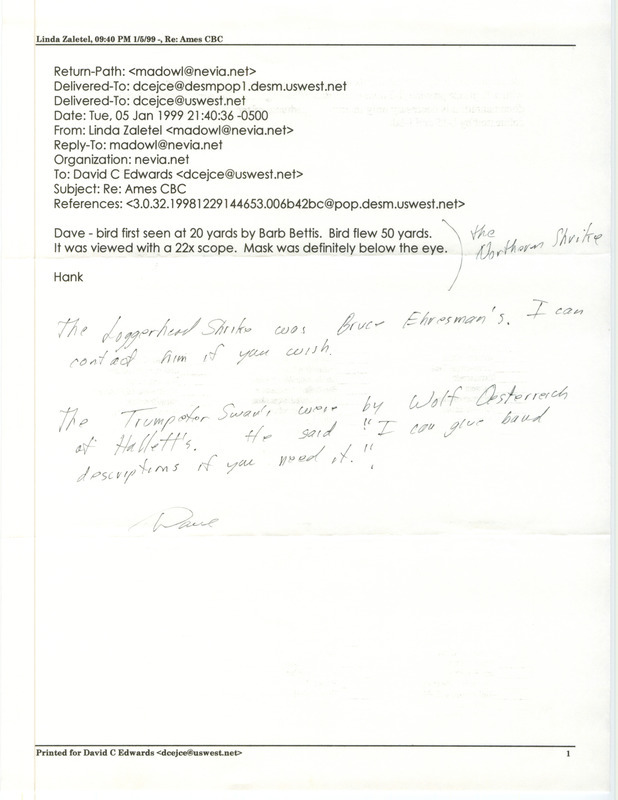 Linda Zaletel, 09:40 PM 1/5/99 -, Re: Ames CBC
Return-Path: <madowl@nevia.net>
Delivered-To: dcejce@desmpop1.desm.uswest.net
Delivered-To: dcejce@uswest.net
Date: Tue, 05 Jan 1999 21:40:36 -0500
From: Linda Zaletel <madowl@nevia.net>
Reply-To: madowl@nevia.net
Organization: nevia.net
To: David C Edwards <dcejce@uswest.net>
Subject: Re: Ames CBC
References: <3.0.32.19981229144653.006b42bc@pop.desm.uswest.net>
Dave - bird first seen at 20 yards by Barb Bettis. Bird flew 50 yards.
It was viewed with a 22x scope. Mask was definitely below the eye.
the
Northern Shrike
Hank
The Loggerhead Shrike was Bruce Ehresman's. I can
contact him if you wish.
The Trumpeter Swans were by Wolf Oesterreich
at Hallett's. He said "I can give band
descriptions if you need it."
Dave
Printed for David C Edwards <dcejce@uswest.net>
1